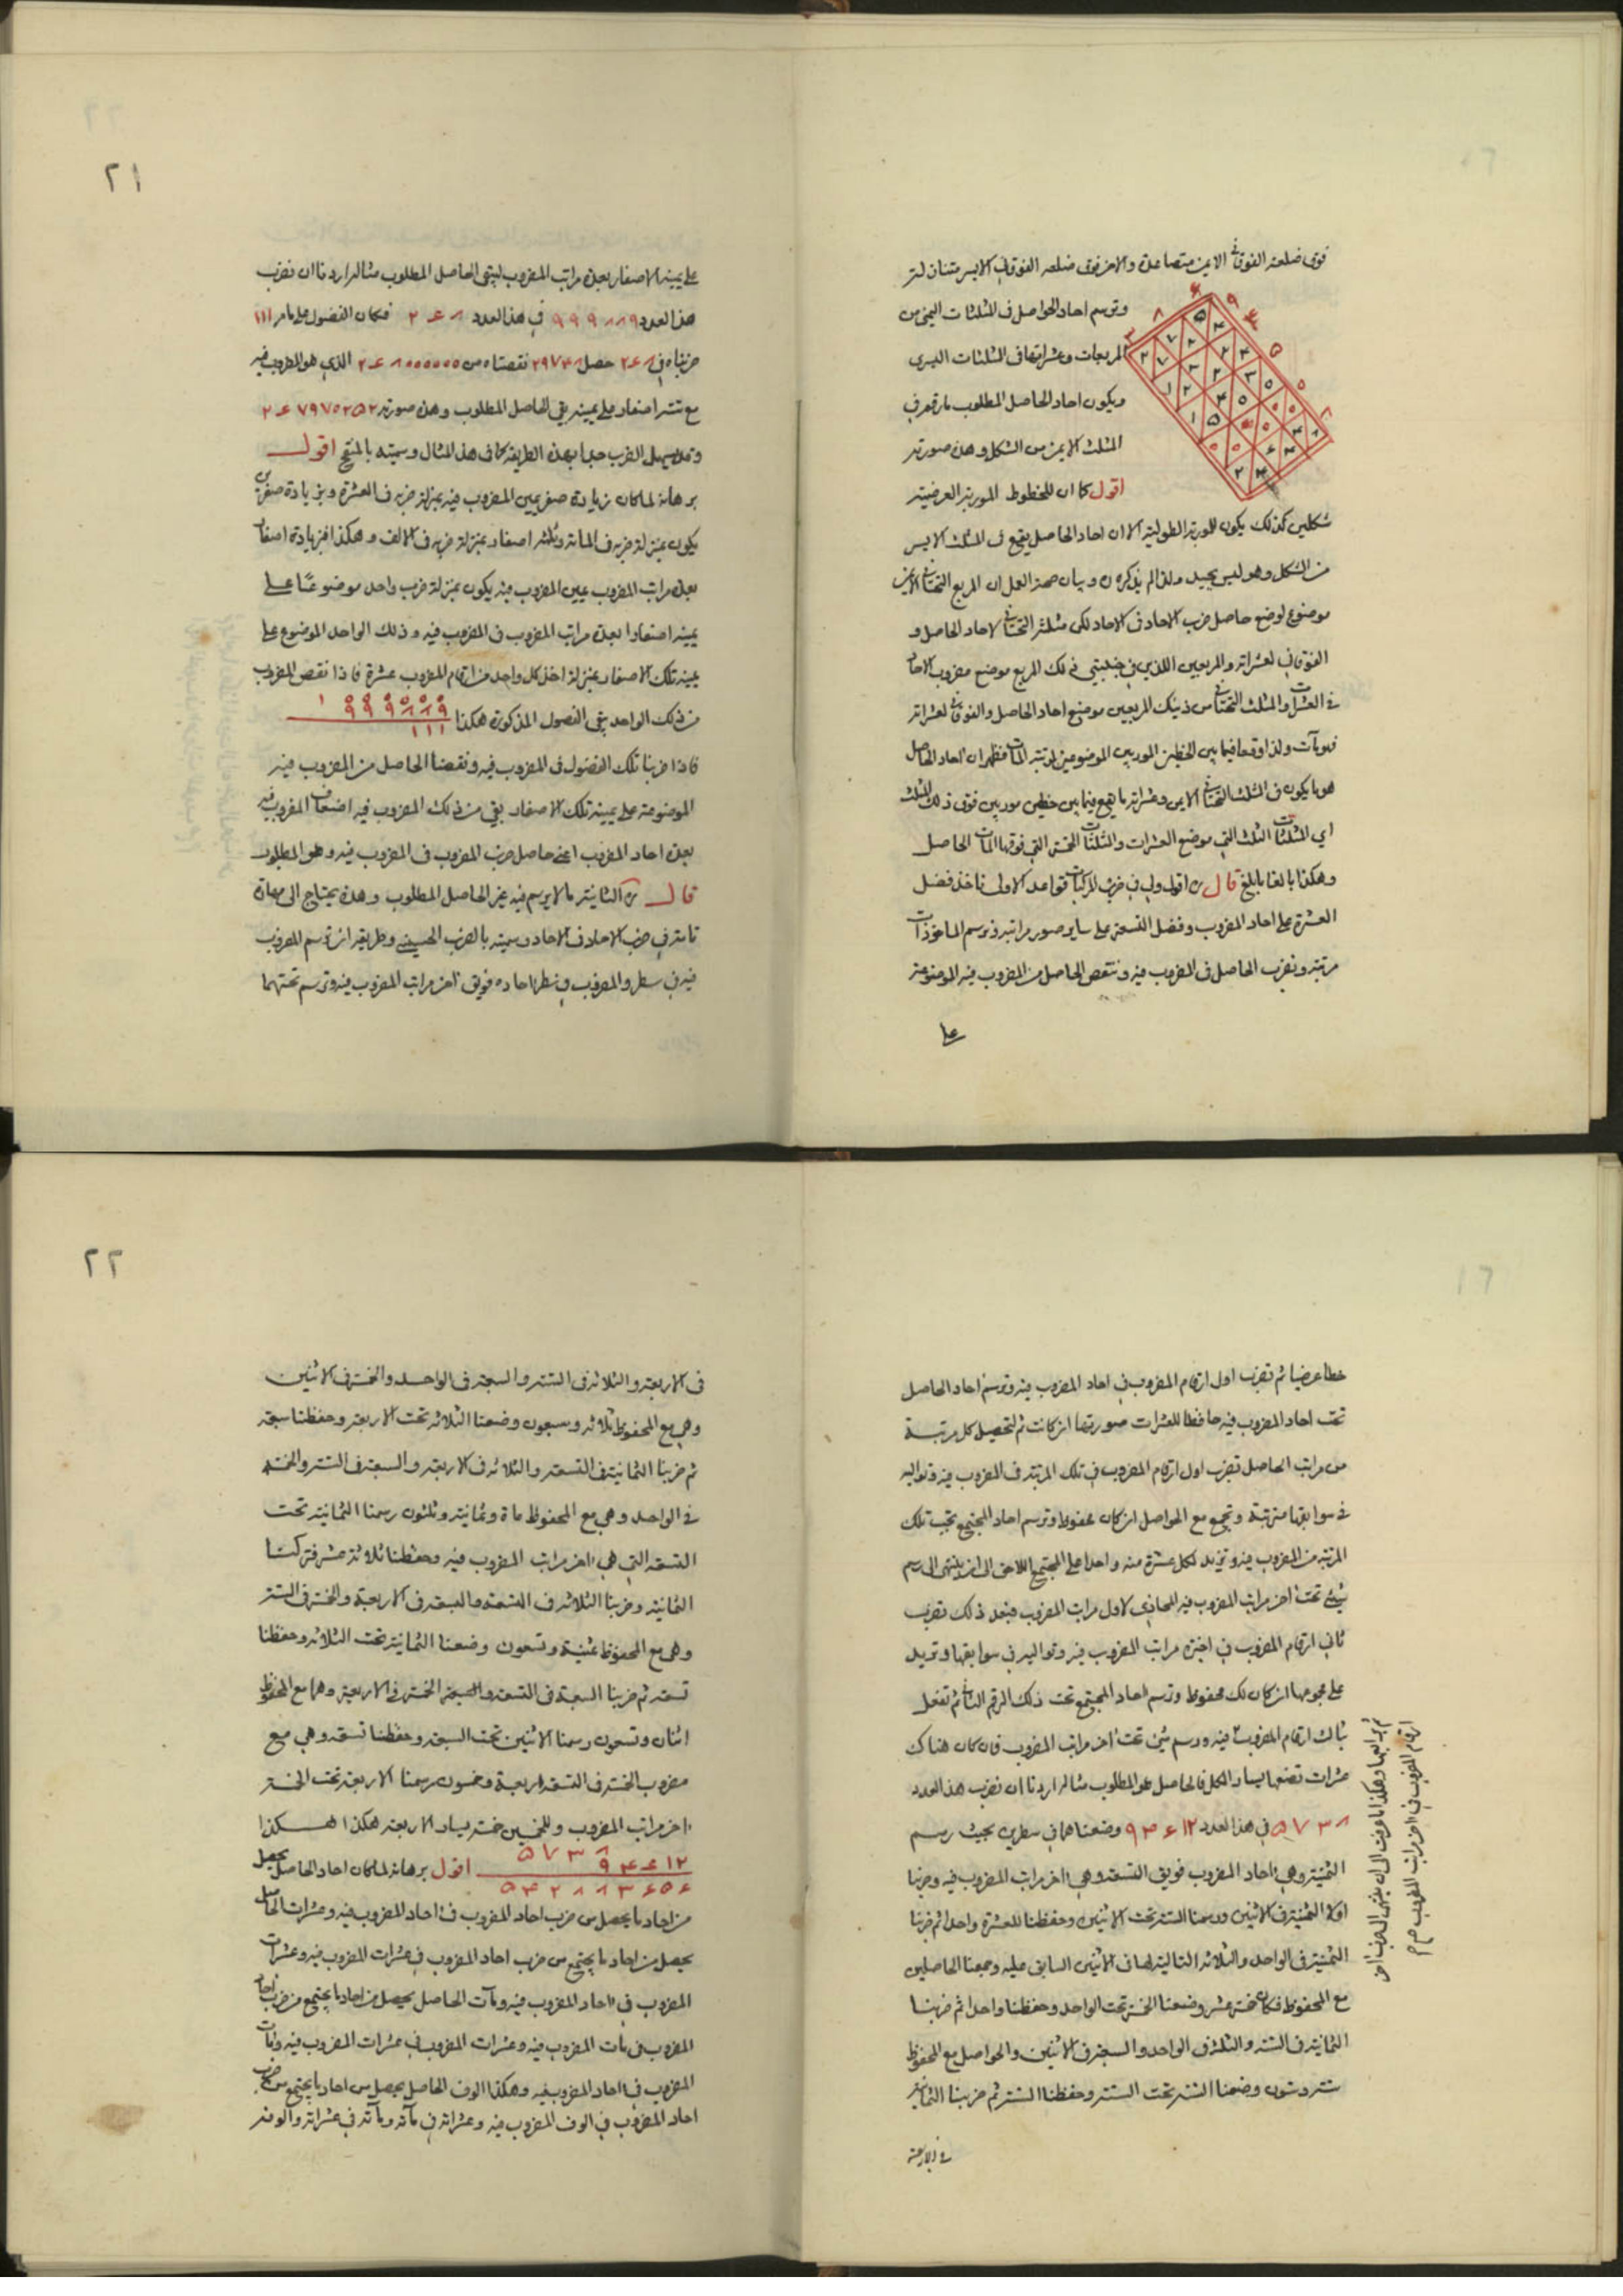 فوق ضلعه الفوقانى الايمن متصاعدة والاخر فوق ضلعه الفوقانى الايسر متنازلة
وترسم احاد الحواصل فى المثلثات اليمنى من
المربعات وعشراتها فى المثلثات اليسرى
ويكون احاد الحاصل المطلوب ما رقم فى
المثلث الايمن من الشكل وهذه صورته
اقول كما ان للخطوط الموربة العرضية
شكلين كذلك يكون للموربة الطولية الا ان احاد الحاصل يقع فى المثلث الايسر
من الشكل وهو ليس بجيد ولذا لم يذكره وبيان صحة العمل ان المربع التحتانى الايمن
موضوع لوضع حاصل ضرب الاحاد فى الاحاد لكن مثلثه التحتانى لاحاد الحاصل و
الفوقانى لعشراته والمربعين اللذين فى جنبتى ذلك المربع موضع مضروب الاحاد
فى العشرات والمثلث التحتانى من ذينك المربعين موضع احاد الحاصل والفوقانى لعشراته
فهو مآت ولذا وقعا فيما بين الخطين الموربين الموضوعين لمرتبة المآت فظهر ان احاد الحاصل
هو ما يكون فى المثلث التحتانى الايمن وعشراته ما يقع فيما بين خطين موربين فوق ذلك المثلث
اى المثلثات الثلث التى موضع العشرات والمثلثات الخمسة التى فوقها لمآت الحاصل
وهكذا بالغا ما بلغ قال ره اقول ولى فى ضرب المركبات قواعد الاولى ناخذ فضل
العشرة على احاد المضروب وفضل التسعة على ساير صور مراتبه ونرسم الماخوذات
مرتبة ونضرب الحاصل فى المضروب فيه وننقص الحاصل من المضروب فيه الموضوعة
على
٢١
على يمينه الاصفار بعدة مراتب المضروب ليبقى الحاصل المطلوب مثاله اردنا ان نضرب
هذا العدد ٩٩٩٨٨٩ فى هذا العدد ٢۴٨ فكان الفضول على ما مر ١١١
ضربناه فى ٢۴٨ حصل
مع ستة اصفار على يمينه بقى الحاصل المطلوب وهذه صورته
وقد يسهل الضرب جدا بهذه الطريقة كما فى هذا المثال وسميته بالمنتج اقول
برهانه لما كان زيادة صفر بيمين المضروب فيه بمنزلة ضربه فى العشرة وبزيادة صفرين
يكون بمنزلة ضربه فى المائة وثلثة اصفار بمنزلة ضربه فى الالف وهكذا فبزيادة اصفار
بعدة مراتب المضروب بيمين المضروب فيه يكون بمنزلة ضرب واحد موضوعا على
يمينه اصفارا بعدة مراتب المضروب فى المضروب فيه وذلك الواحد الموضوع على
يمينه تلك الاصفار بمنزلة اخذ كل واحد من ارقام المضروب عشرة فاذا نقص المضروب
من ذلك الواحد بقى الفضول المذكورة هكذا
٩٩٩٨٨٩
١١١
فاذا ضربنا تلك الفضول فى المضروب فيه ونقصنا الحاصل من المضروب فيه
الموضوعة على يمينه تلك الاصفار بقى من ذلك المضروب فيه اضعاف المضروب فيه
بعدة احاد المضروب اعنى حاصل ضرب المضروب فى المضروب فيه وهو المطلوب
قال ره الثانية ما لا يرسم فيه غير الحاصل المطلوب وهذه يحتاج الى مهارة
تامة فى ضرب الاحاد فى الاحاد وسميته بالضرب الحسينى وطريقه ان ترسم المضروب
فيه فى سطر والمضروب فى سطر احاده فويق اخر مراتب المضروب فيه وترسم تحتهما
خطا عرضيا ثم تضرب اول ارقام المضروب فى احاد المضروب فيه وترسم احاد الحاصل
تحت احاد المضروب فيه حافظا للعشرات صورتها ان كانت ثم لتحصيل كل مرتبة
من مراتب الحاصل تضرب اول ارقام المضروب فى تلك المرتبة من المضروب فيه وتواليه
فى سوابقها مترتبة وتجمع مع الحواصل ان كان محفوظ وترسم احاد المجتمع تحت تلك
المرتبة من المضروب فيه وتزيد لكل عشرة منه واحدا على المجتمع اللاحق الى ان ينتهى الى رسم
شئ تحت اخر مراتب المضروب فيه المحاذى لاول مراتب المضروب فبعد ذلك تضرب
ثانى ارقام المضروب فى اخيرة مراتب المضروب فيه وتواليه فى سوابقها وتزيد
على مجموعها ان كان لك محفوظ وترسم احاد المجتمع تحت ذلك الرقم الثانى ثم تفعل
بثالث ارقام المضروب فيه ورسم شئ تحت اخر مراتب المضروب فان كان هناك
عشرات تضعها يسار الكل فالحاصل هو المطلوب مثاله اردنا ان نضرب هذا العدد
٥٧٣٨ فى هذا العدد ٩۴۶١٢ وضعناهما فى سطرين بحيث رسم
الثمنية وهى احاد المضروب فويق التسعة وهى اخر مراتب المضروب فيه وضربنا
اولا الثمنية فى الاثنين ورسمنا الستة تحت الاثنين وحفظنا للعشرة واحدا ثم ضربنا
الثمنية فى الواحد والثلاثة التالية لها فى الاثنين السابق عليه وجمعنا الحاصلين
مع المحفوظ فكان خمسة عشر وضعنا الخمسة تحت الواحد وحفظنا واحدا ثم ضربنا
الثمانية فى الستة والثلثة فى الواحد والسبعة فى الاثنين والحواصل مع المحفوظ
ستة وستون وضعنا الستة تحت الستة وحفظنا الستة ثم ضربنا الثمانية
فى الاربعة
٢٢
فى الاربعة والثلاثة فى الستة والسبعة فى الواحد والخمسة فى الاثنين
وهى مع المحفوظ ثلاثة وسبعون وضعنا الثلاثة تحت الاربعة وحفظنا سبعة
ثم ضربنا الثمانية فى التسعة والثلاثة فى الاربعة والسبعة فى الستة والخمسة
فى الواحد وهى مع المحفوظ ماة وثمانية وثلثون رسمنا الثمانية تحت
التسعة التى هى اخر مراتب المضروب فيه وحفظنا ثلاثة عشر فتركنا
الثمانية وضربنا الثلاثة فى التسعة والسبعة فى الاربعة والخمسة فى الستة
وهى مع المحفوظ ثمنية وتسعون وضعنا الثمانية تحت الثلاثة وحفظنا
تسعة ثم ضربنا السبعة فى التسعة والخمسة فى الاربعة وهما مع المحفوظ
اثنان وتسعون رسمنا الاثنين تحت السبعة وحفظنا تسعة وهى مع
مضروب الخمسة فى التسعة اربعة وخمسون رسمنا الاربعة تحت الخمسة
اخر مراتب المضروب وللخمسين خمسة يسار الاربعة هكذا
٥٧٣٨
٩۴۶١٢
٥۴٢٨٨٣۶٥۶
اقول برهانه لما كان احاد الحاصل يحصل
من احاد ما يحصل من ضرب احاد المضروب فى احاد المضروب فيه وعشرات الحاصل
يحصل من احاد ما يجتمع من ضرب احاد المضروب فى عشرات المضروب فيه وعشرات
المضروب فى احاد المضروب فيه ومآت الحاصل يحصل من احاد ما يجتمع من ضرب احاد
المضروب فى مآت المضروب فيه وعشرات المضروب فى عشرات المضروب فيه ومآت
المضروب فى احاد المضروب فيه وهكذا الوف الحاصل يحصل من احاد ما يجتمع من ضرب
احاد المضروب فى الوف المضروب فيه وعشراته فى مآته ومآته فى عشراته والوفه